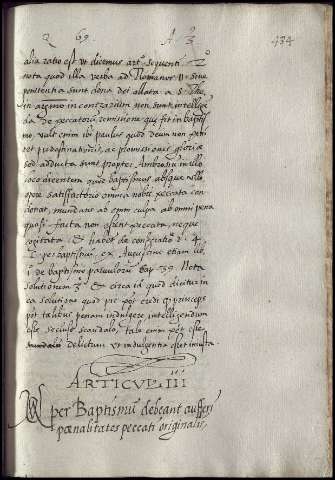 2 69. A. 3 434
alia ratio est vt dicemus art.º sequenti. 2.º
nota quod illa verba ad Romanos 11. sine
penitentia sunt dona dei allata a S. Tho.
in argum.º in contrarium non sunt intelligen
da de peccatorum remissione quę fit in baptis
mo. vult enim ibi paulus quod deum non peni
tet predestinationis, ac promissionis gloriæ
sed adducta sunt propter Ambrosium in illo
loco dicentem quod baptismus absque ullo
opere satisfactorio omnia nobis peccata con
donat, mundans ab omni culpa ab omni pena
quasi facta non essent peccata, neque
cogitata & habet de consecratio. d. 4.
c. per baptismum. ex Augustino etiam lib.
1. de baptismo paruulorum cap. 39. Nota
solutionem 3.º & circa id quod dicitur in
ea solutione quod pie pot
pot talibus penam indulgere intelligendum
esse secluso scandalo, tale enim pot esse
delictum vt indulgentia esset iniusta.
ARTICVL. III
per Baptismū debeant aufferri
pœnalitates peccati originalis,